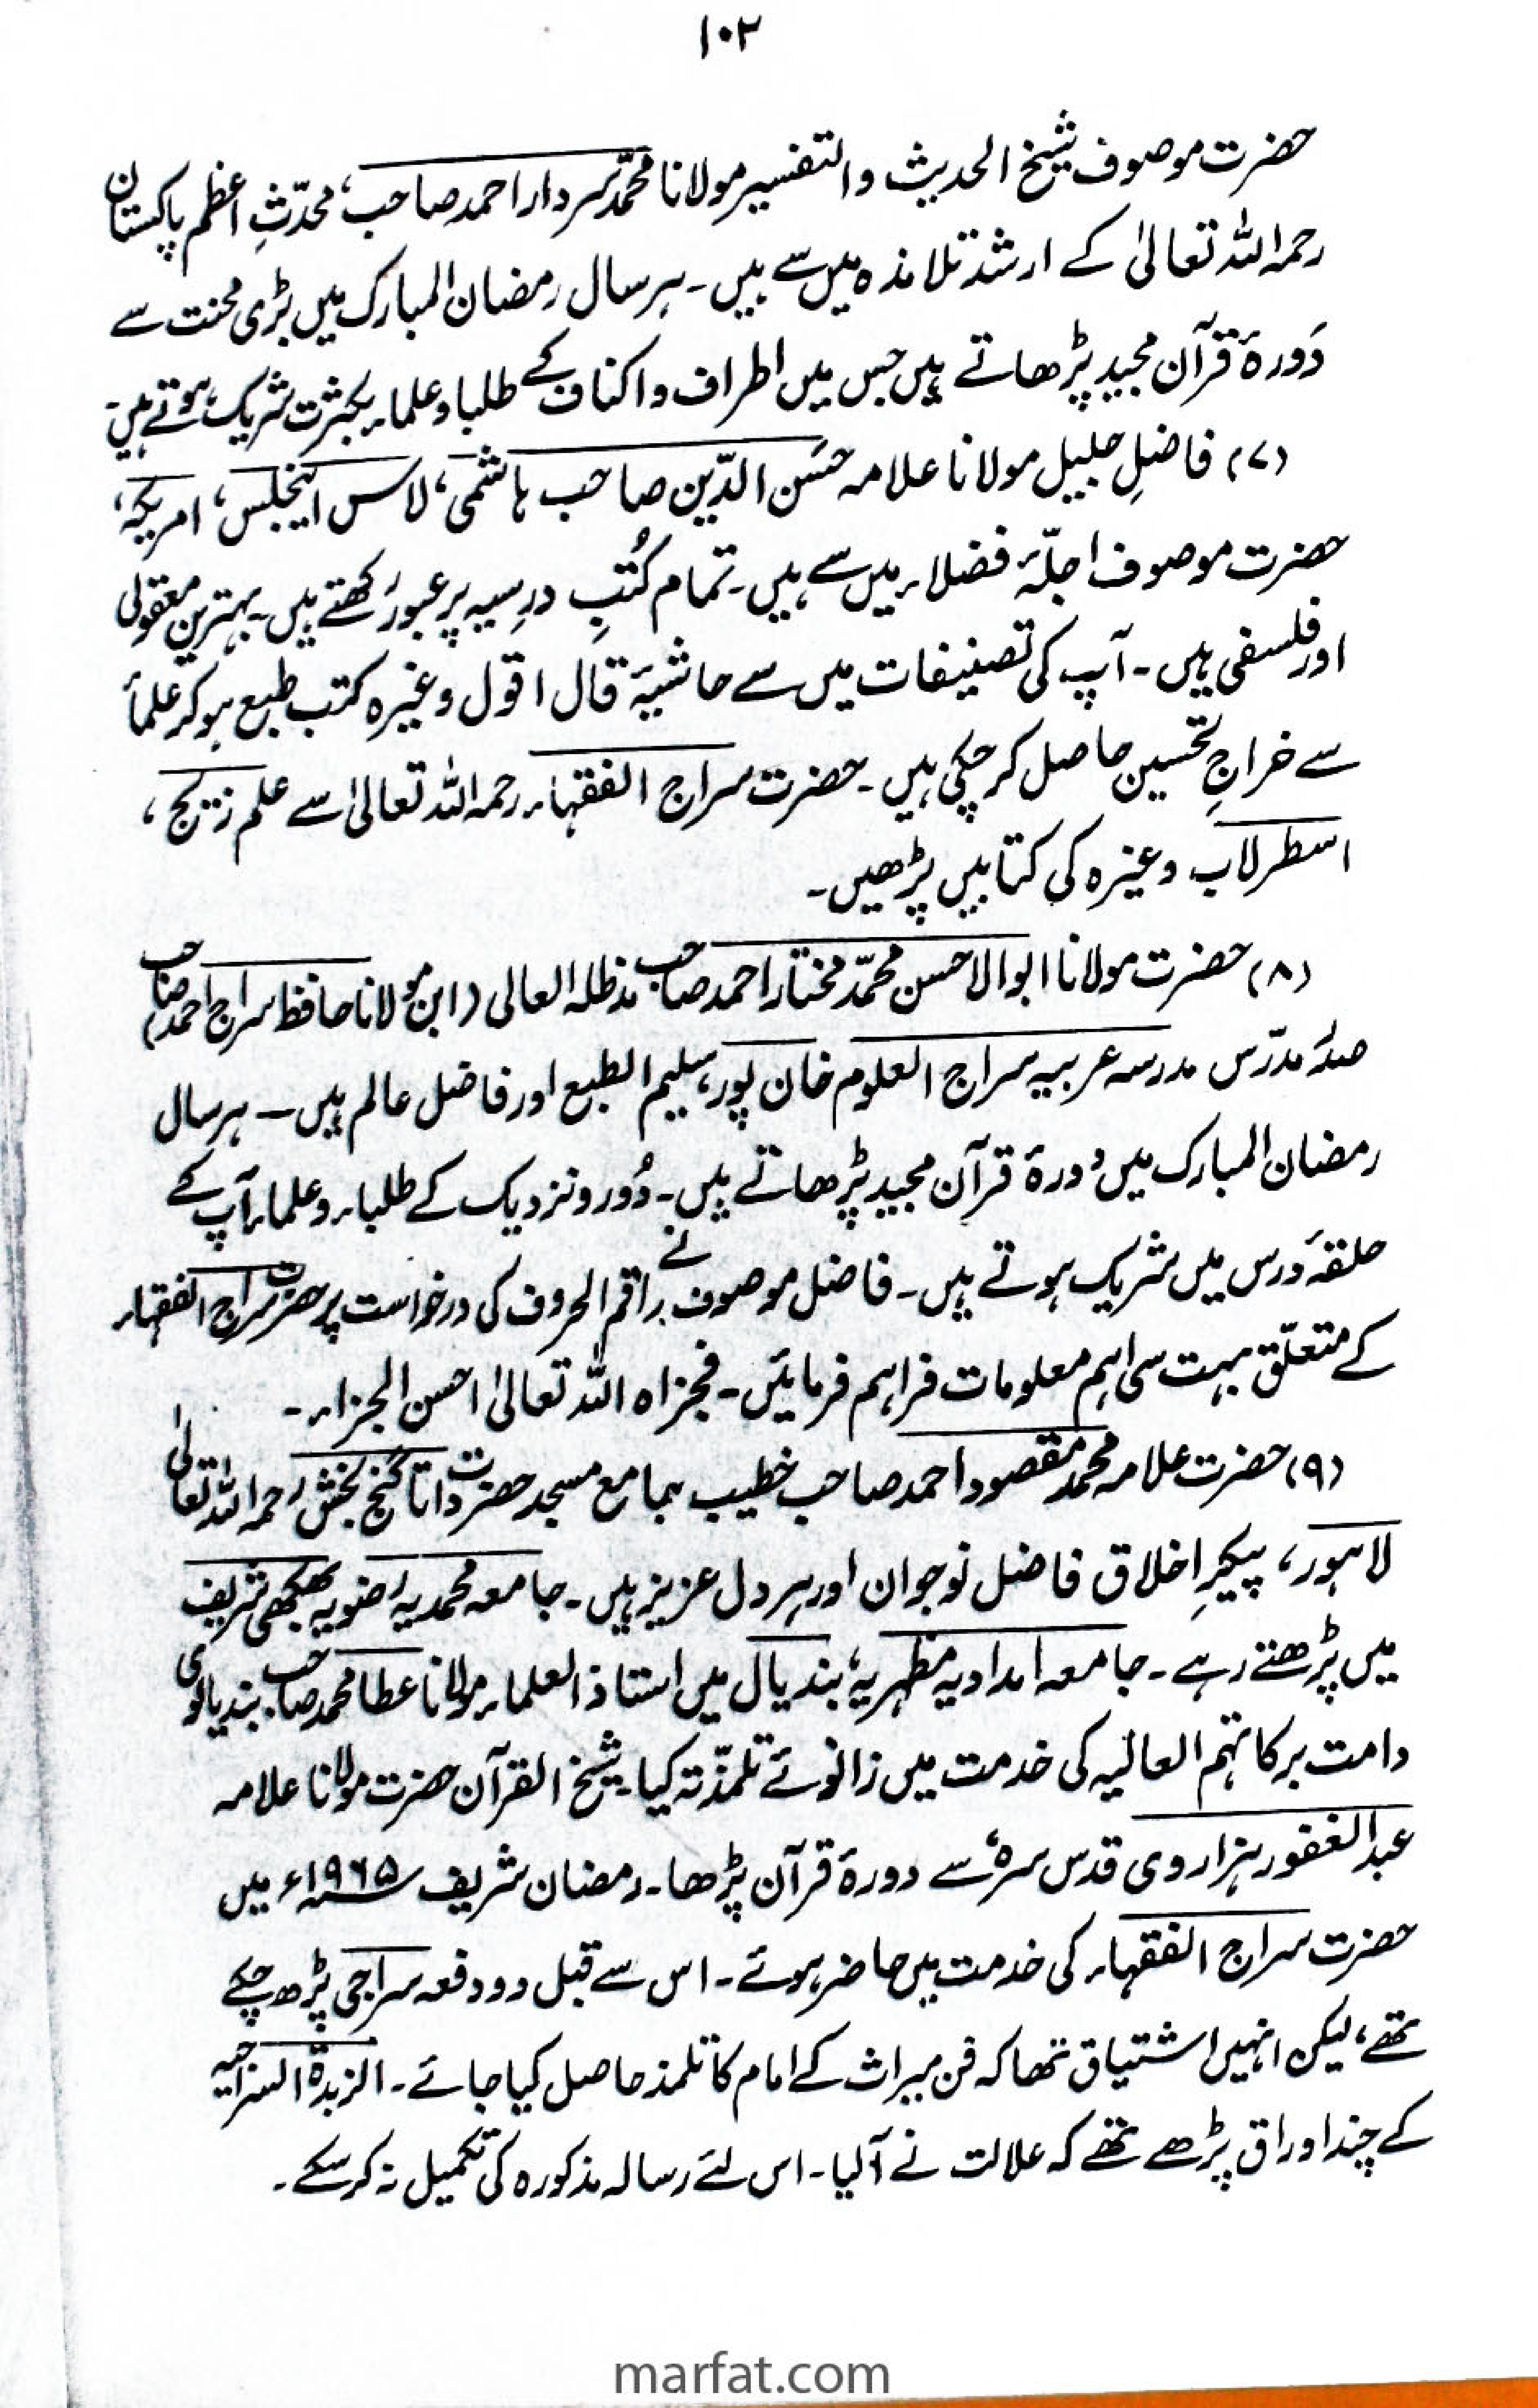 ۱۰۲
حضرت موصوف شیخ الحدیث والتفسیر مولانا محمّد سردار احمد صاحب، محدّثِ اعظم پاکستان
رحمہ اللہ تعالیٰ کے ارشد تلامذہ میں سے ہیں۔ ہر سال رمضان المبارک میں بڑی محنت سے
دَورۂ قرآن مجید پڑھاتے ہیں جس میں اطراف و اکناف کے طلبا و علماء بکثرت شریک ہوتے ہیں۔
(۷) فاضلِ جلیل مولانا علامہ حسَن الدّین صاحب ہاشمی، لاس اینجلس، امریکہ،
حضرت موصوف اجلّۂ فضلاء میں سے ہیں۔ تمام کُتبِ درسیہ پر عبور رکھتے ہیں۔ بہترین معقولی
اور فلسفی ہیں۔ آپ کی تصنیفات میں سے حاشیۂ قال اقول وغیرہ کتب طبع ہو کر علمأ
سے خراجِ تحسین حاصل کر چکی ہیں۔ حضرت سراج الفقہاء رحمہ اللہ تعالیٰ سے علم زیج،
اسطرلاب وغیرہ کی کتابیں پڑھیں۔
(۸) حضرت مولانا ابوالاحسن محمّد مختار احمد صاحب مدظلہ العالی (ابن مولانا حافظ سراج احمد صاحب)
صدر مدرّس مدرسہ عربیہ سراج العلوم خان پور، سلیم الطبع اور فاضل عالم ہیں۔ ہر سال
رمضان المبارک میں دورۂ قرآن مجید پڑھاتے ہیں۔ دُور و نزدیک کے طلباء و علماء آپ کے
حلقۂ درس میں شریک ہوتے ہیں۔ فاضل موصوف نے راقم الحروف کی درخواست پر حضرت سراج الفقہاء
کے متعلّق بہت سی اہم معلومات فراہم فرمائیں۔ فجزاہ اللہ تعالیٰ احسن الجزاء۔
(۹) حضرت علامہ محمد مقصود احمد صاحب خطیب جامع مسجد حضرت داتا گنج بخش رحمہ اللہ تعالیٰ
لاہور، پیکرِ اخلاق فاضل نوجوان اور ہر دل عزیز ہیں۔ جامعہ محمدیہ رضویہ بھکھی شریف
میں پڑھتے رہے۔ جامعہ امدادیہ مظہریہ، بندیال میں استاذ العلماء مولانا عطا محمد صاحب بندیالوی
دامت برکاتہم العالیہ کی خدمت میں زانوئے تلمّذ تہ کیا۔ شیخ القرآن حضرت مولانا علامہ
عبدالغفور ہزاروی قدس سرہٗ سے دورۂ قرآن پڑھا۔ رمضان شریف ۱۹۶۵ء میں
حضرت سراج الفقہاء کی خدمت میں حاضر ہوئے۔ اس سے قبل دو دفعہ سراجی پڑھ چکے
تھے، لیکن انہیں اشتیاق تھا کہ فن میراث کے امام کا تلمذ حاصل کیا جائے۔ الزبدۃ السراجیہ
کے چند اوراق پڑھے تھے کہ علالت نے آ لیا۔ اس لئے رسالہ مذکورہ کی تکمیل نہ کر سکے۔
marfat.com